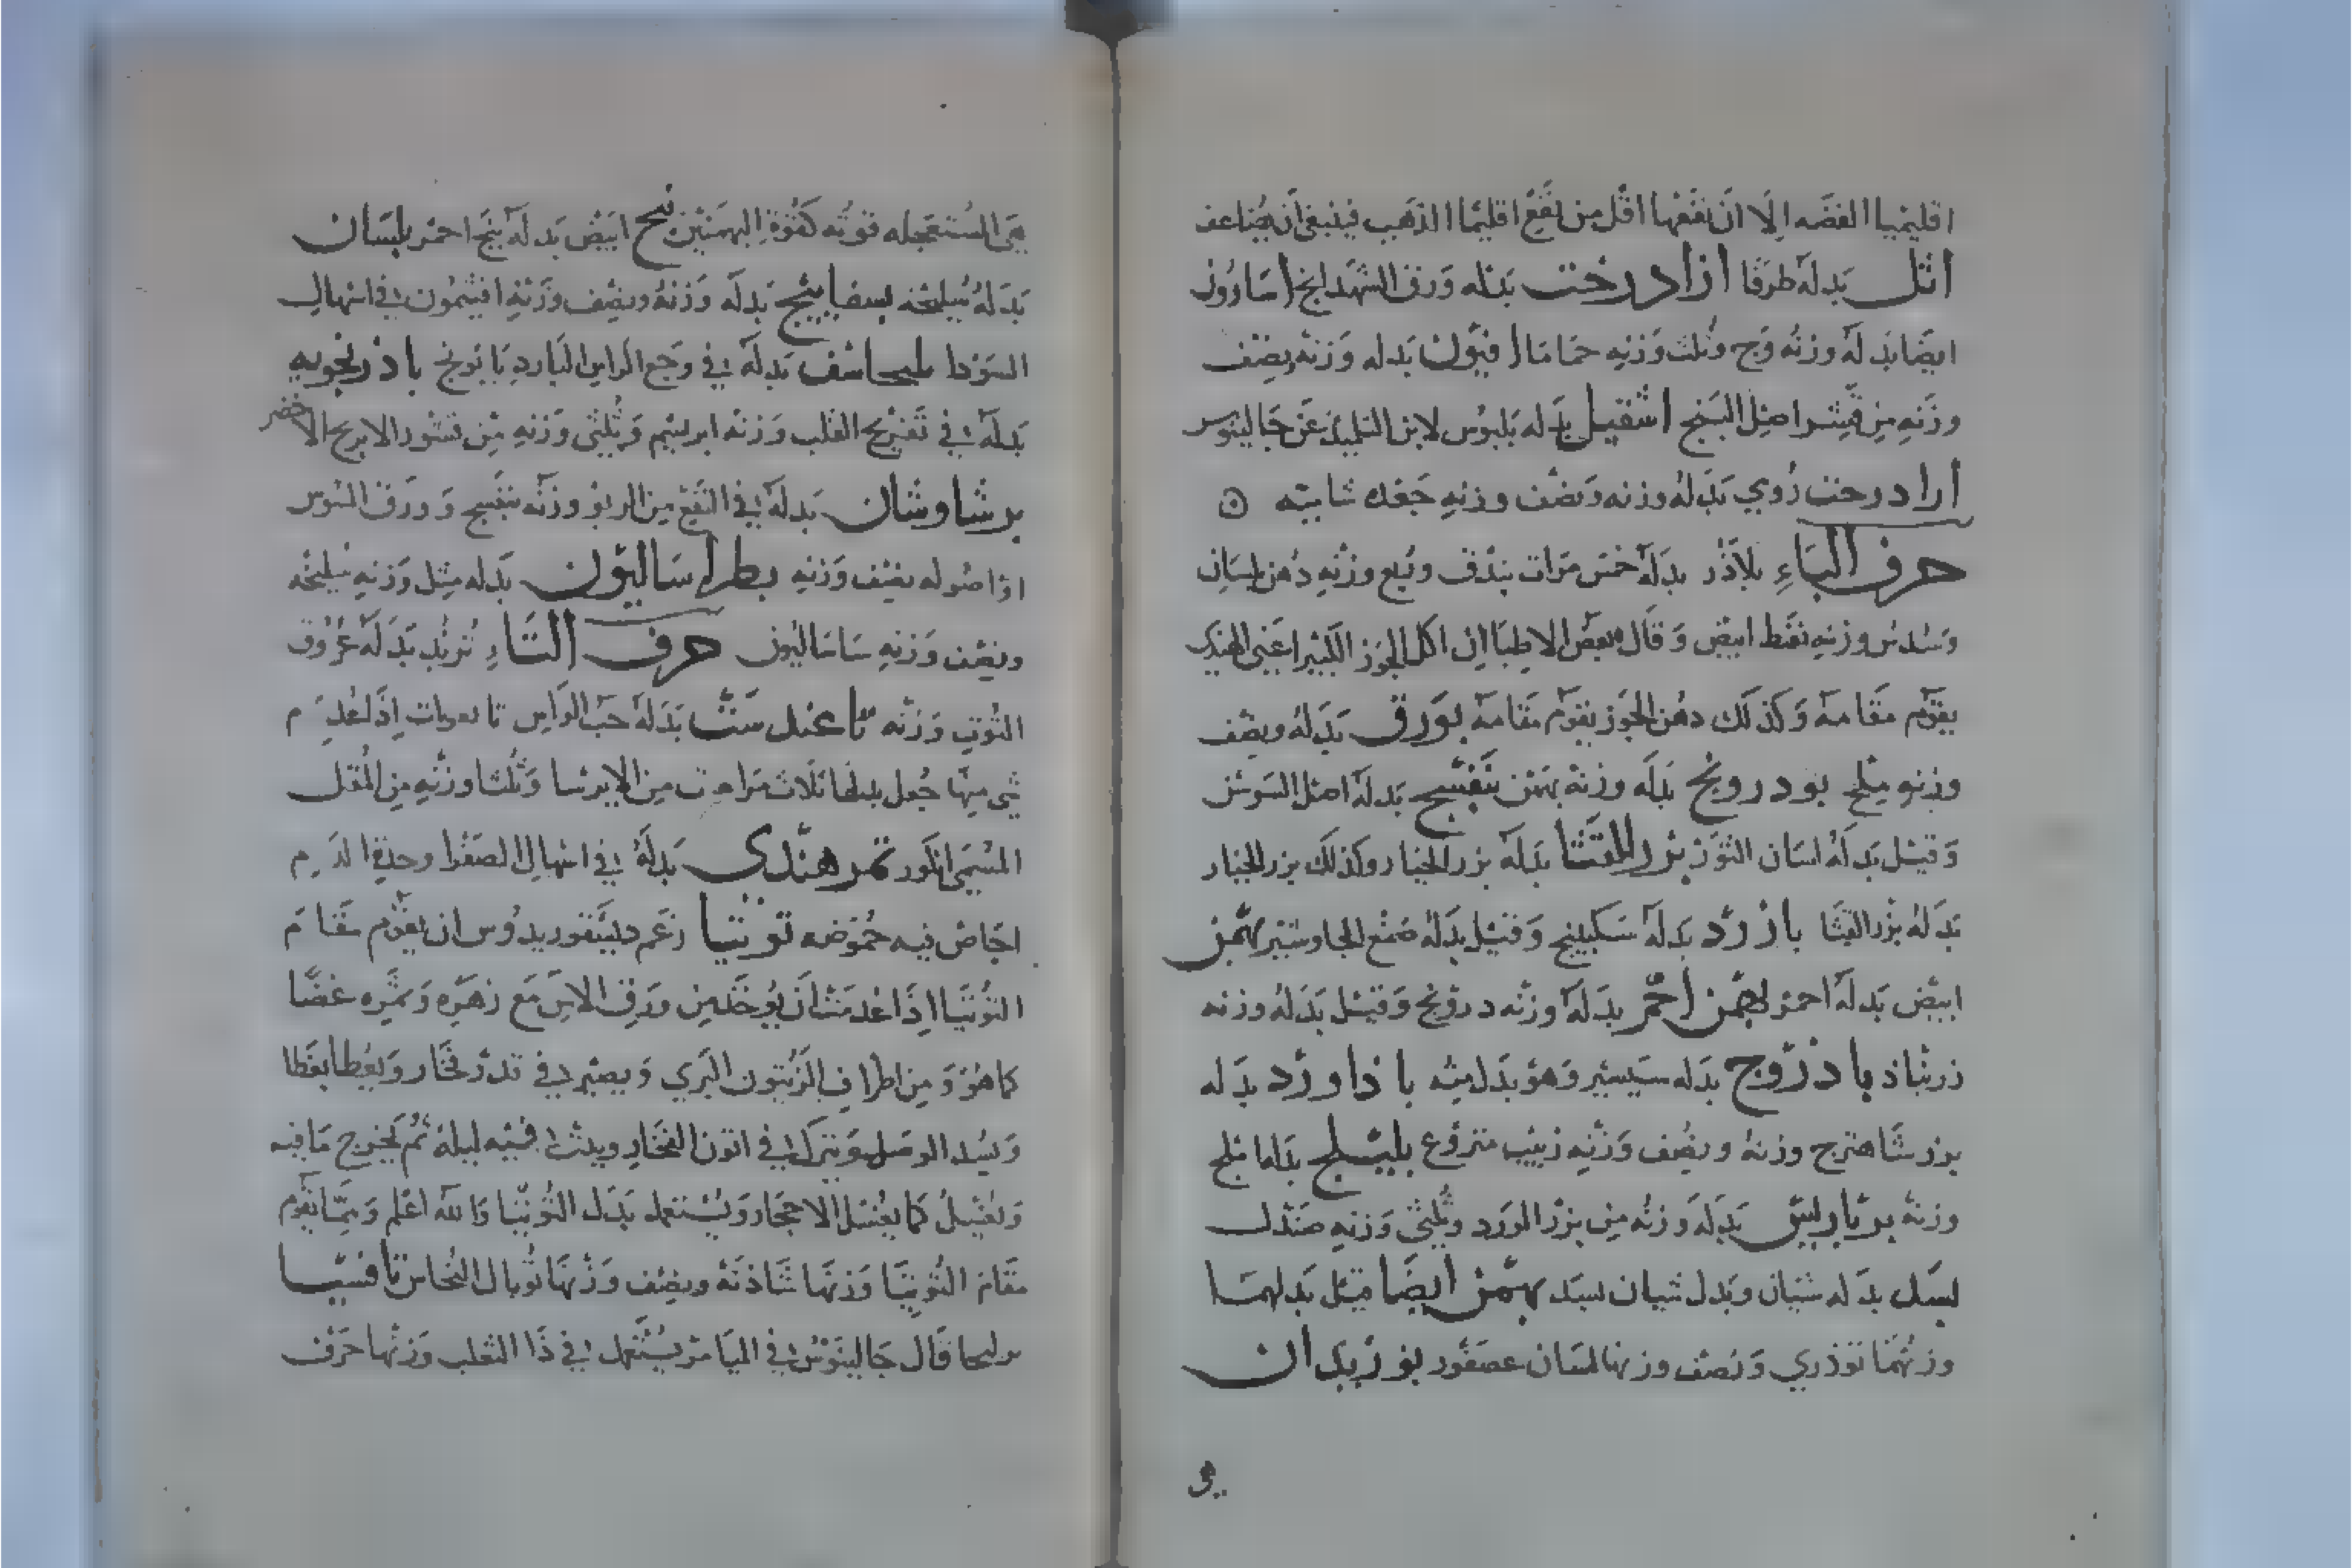 اقليميا الفضه الا ان نفعها اقل من نفع اقليميا الذهب فينبغي ان يضاعف
اثل بدله طرفا ازادرخت بدله ورق الشهدانج اسارون
ايضا بدله وزنه وج وثلث وزنه حماما افيون بدله وزنه ونصف
وزنه من قشر اصل البنج اشقيل بدله بلبوس لابن التلميذ عن جالينوس
ارادرخت رومي بدله وزنه ونصف وزنه جعده شاميه
حرف الباء بلاذر بدله خمس مرات بندق وربع وزنه دهن بلسان
وسدس وزنه نفط ابيض وقال بعض الاطبا ان اكل الجوز الكبير اعني الهندي
يقوم مقامه وكذلك دهن الجوز يقوم مقامه بورق بدله ونصف
وزنه ملح بودرونج بدله وزنه بهمن بنفسج بدله اصل السوس
وقيل بدله لسان الثور بزر القثا بدله بزر الخيار وكذلك بزر الخيار
بدله بزر القثا بارزد بدله سكبينج وقيل بدله صمغ الجاوشير بهمن
ابيض بدله احمر بهمن احمر بدله وزنه درونج وقيل بدله وزنه
زرنباد باذروج بدله سيسنبر وهو بدل منه باذاورد بدله
بزر شاهترج وزنه ونصف وزنه زبيب منزوع بليلج بدلها ملح
وزنه برباريس بدله وزنه من بزر الورد وثلثي وزنه صندل
بسد بدله شيان وبدل شيان بسد بهمن ايضا قيل بدلهما
وزنهما توذري ونصف وزنها لسان عصفور بوزيدان
هي
هي المستعجله قوته كقوة البهمنين بنج ابيض بدله بنج احمر بلسان
بدله سليخه بسفايج بدله وزنه ونصف وزنه افتيمون في اسهال
السودا بدله في وجع الراس البارد بابونج باذرنجويه
بدله في تفريح القلب وزنه ابريسم وثلثي وزنه من قشور الاترج الاخضر
برشاوشان بدله في النفع من الربو وزنه بنفسج وورق السوس
او اصوله نصف وزنه بطراساليون بدله مثل وزنه سليخه
ونصف وزنه ساساليون حرف التاء تربد بدله عروق
التوت وزنه بدله حب الراس اذا عدم
شي منها جعل بدلها ثلاث مرات من الايرسا وثلثا وزنه من المقل
المسمى الكور تمر هندي بدله في اسهال الصفرا وحدة الدم
اجاص فيه حموضه توتيا زعم ديسقوريدوس ان يقوم مقام
التوتيا اذا عدمت ان يوخذ من ورق الاس مع زهره وثمره غضا
كما هو ومن اطراف الزيتون البري ويصير في قدر فخار ويغطا بغطا
ويسد الوصل ويترك في اتون الفخار ويلبث فيه ليلة ثم يخرج ما فيه
ويغسل كما يغسل الاحجار ويستعمل بدل التوتيا والله اعلم ومما يقوم
مقام التوتيا وزنها شاذنه ونصف وزنها توبال النحاس تافسيا
قال جالينوس في الميامر يستعمل في ذا الثعلب وزنها حرف